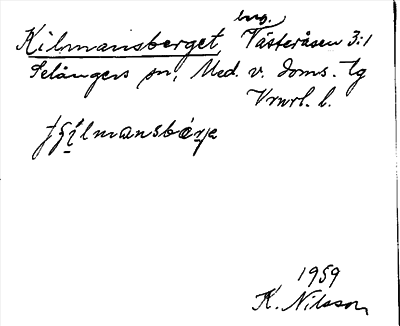 Kilmansberget, bng. Västeråsen 3:1
Selångers sn, Med. v. doms. tg
Vrurl. l.
1959
K. Nilsson